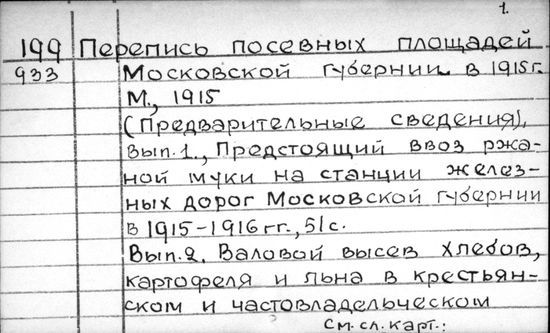 1.
199 Перепись посевных площадей
933 Московской губернии в 1915г.
М., 1915
(Предварительные сведения),
Вып.1., Предстоящий ввоз ржа-
ной муки на станции желез-
ных дорог Московской губернии
в 1915-1916 гг., 51с.
Вып.2. Валовой высев хлебов,
картофеля и льна в крестьян-
ском и частовладельческом
См. сл. карт.: